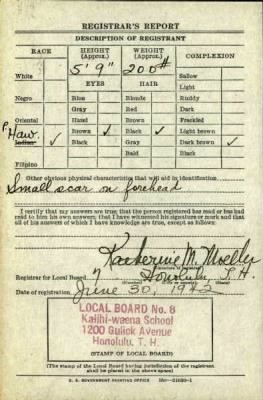 REGISTRAR'S REPORT
DESCRIPTION OF REGISTRANT
RACE HEIGHT (Approx.) WEIGHT (Approx.) COMPLEXION
5' 9" 200#
White EYES HAIR Sallow
Light
Negro Blue Blonde Ruddy
Gray Red Dark
Oriental Hazel Brown Freckled
P Haw. ✓ Brown ✓ Black ✓ Light brown
Indian Black Gray Dark brown ✓
Bald Black
Filipino
Other obvious physical characteristics that will aid in identification
Small scar on forehead
I certify that my answers are true; that the person registered has read or has had
read to him his own answers; that I have witnessed his signature or mark and that
all of his answers of which I have knowledge are true, except as follows:
Katherine M. Moeller
Registrar for Local Board Honolulu, T.H.
Date of registration June 30, 1942
LOCAL BOARD No. 8
Kalihi-waena School
1200 Gulick Avenue
Honolulu, T. H.
(STAMP OF LOCAL BOARD)
(The stamp of the Local Board having jurisdiction of the registrant
shall be placed in the above space)
U. S. GOVERNMENT PRINTING OFFICE